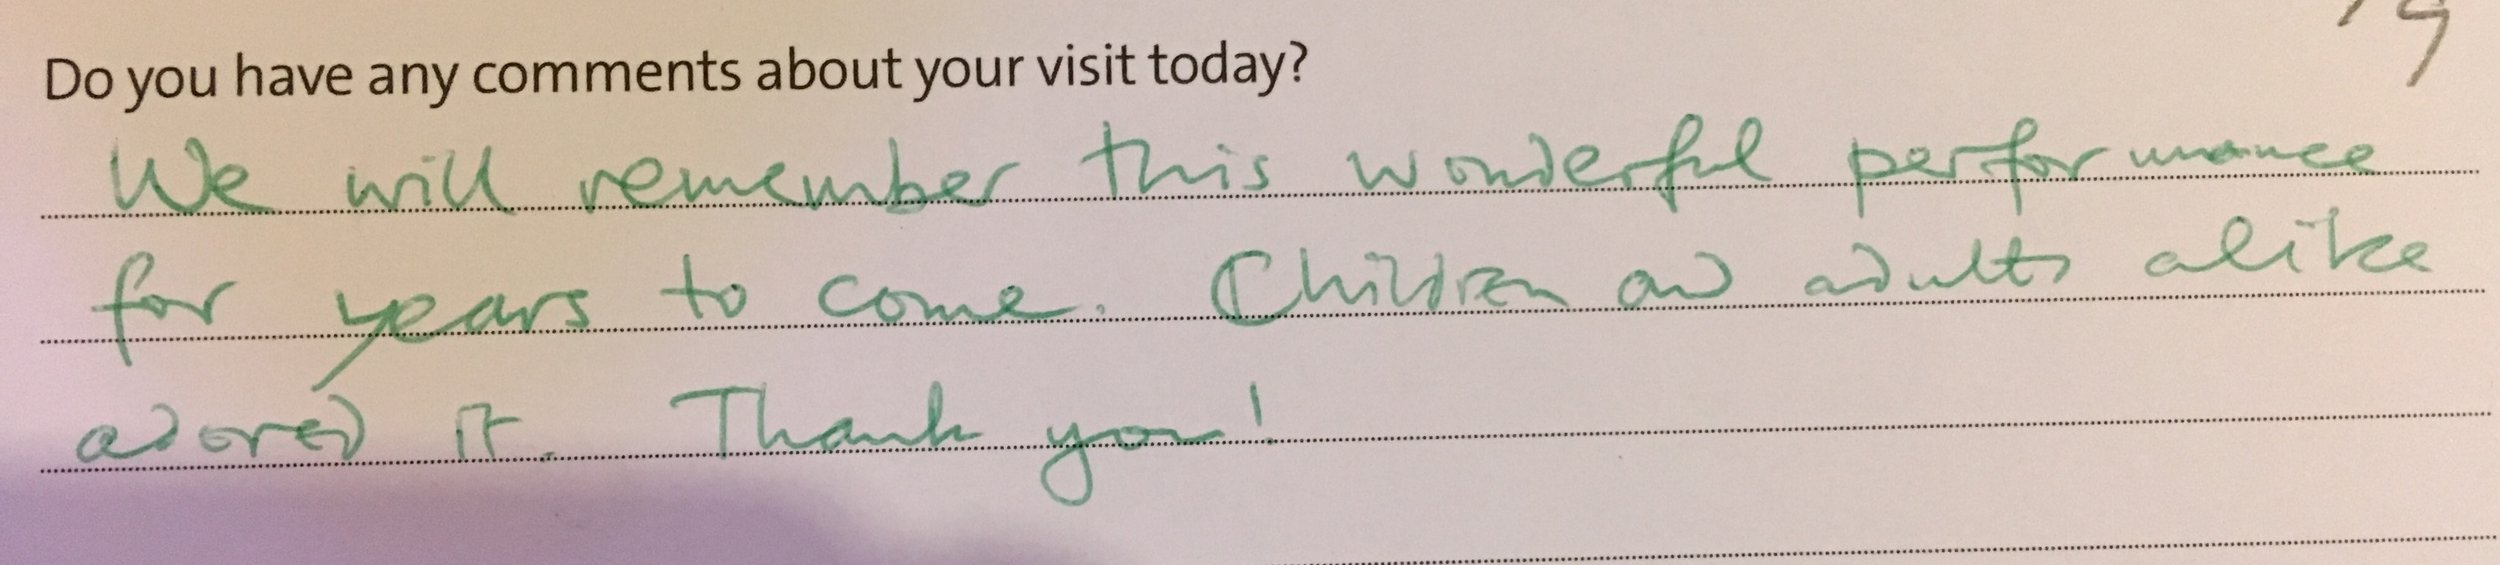 Do you have any comments about your visit today?
We will remember this wonderful performance
for years to come. Children and adults alike
adored it. Thank you!